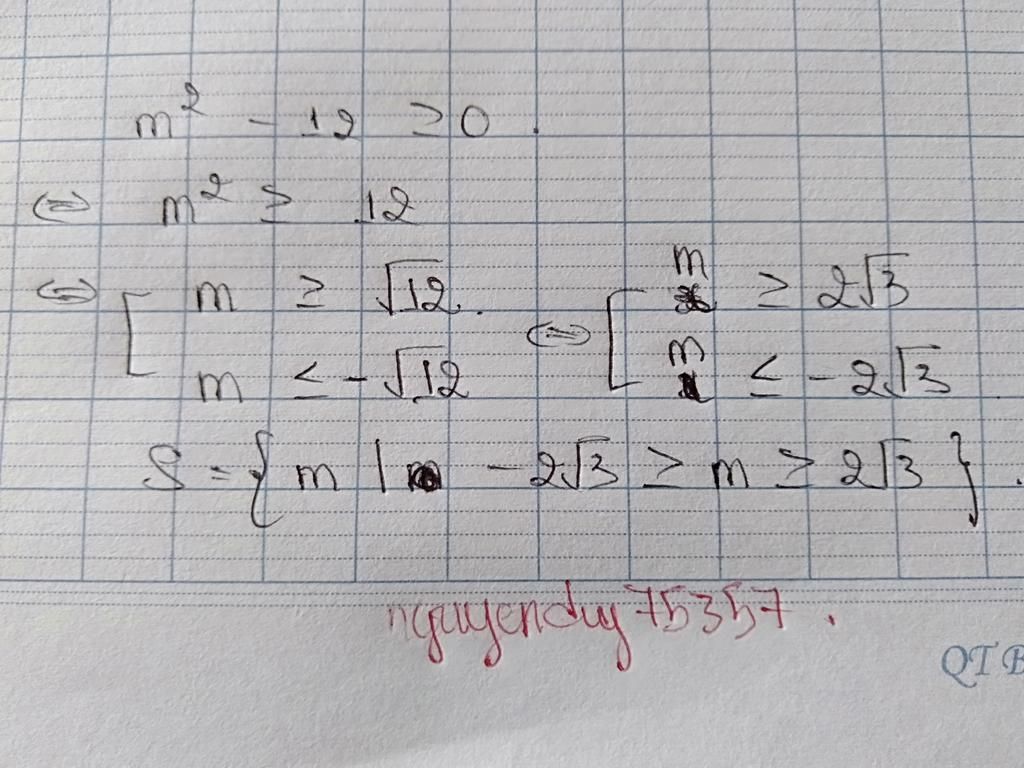 m² - 12 ≥ 0.
⇔ m² ≥ 12
⇔ [ m ≥ √12. ⇔ [ m ≥ 2√3
m ≤ -√12 m ≤ -2√3
S = { m | -2√3 ≥ m ≥ 2√3 }.
nguyenduy75357.
QTB